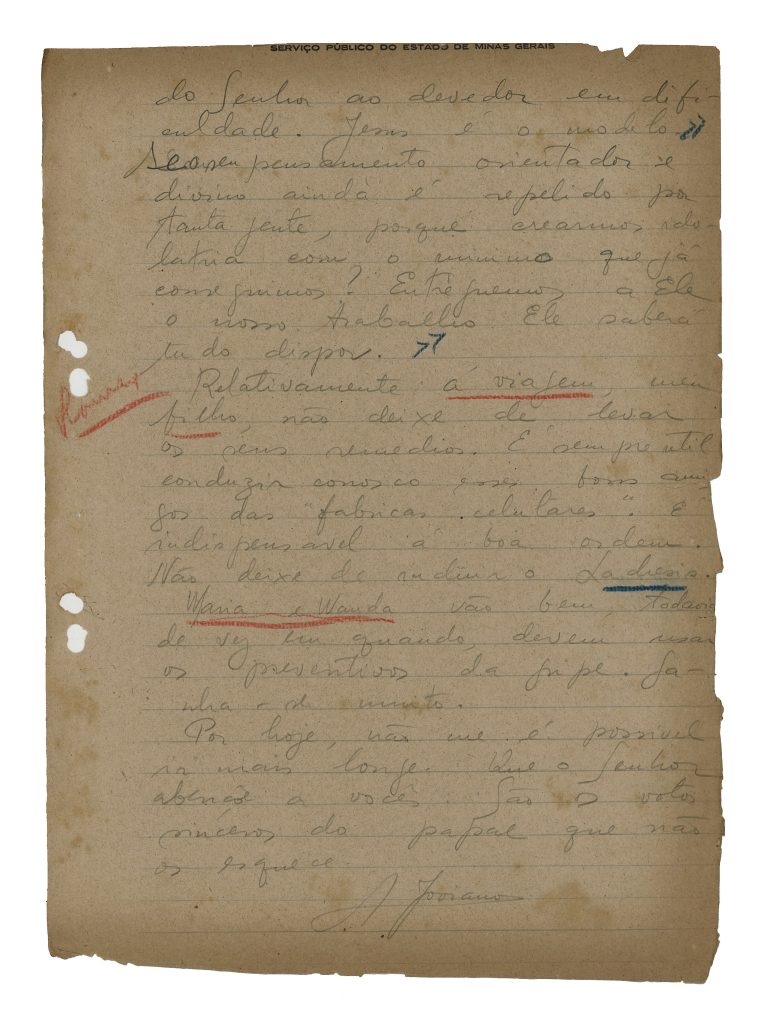 SERVIÇO PÚBLICO DO ESTADO DE MINAS GERAIS
do Senhor ao devedor em difi-
culdade. Jesus é o modelo »
Se o seu pensamento orientador e
divino ainda é repelido por
tanta gente, porque crearmos ido-
latria com o minimo que já
conseguimos? Entreguemos a Ele
o nosso trabalho Ele saberá
tudo dispor. »
Relativamente á viagem, meu
filho, não deixe de levar
os seus remedios. É sempre util
conduzir conosco esses bons ami-
gos das "fabricas celulares". É
indispensavel á boa ordem.
Não deixe de incluir o Lachesis.
Maria e Wanda vão bem, todavia
de vez em quando, devem usar
os preventivos da gripe. Ga-
nha-se muito.
Por hoje, não me é possivel
ir mais longe. Que o Senhor
abençôe a vocês. São os votos
sinceros do papae que não
os esquece.
A Joviano